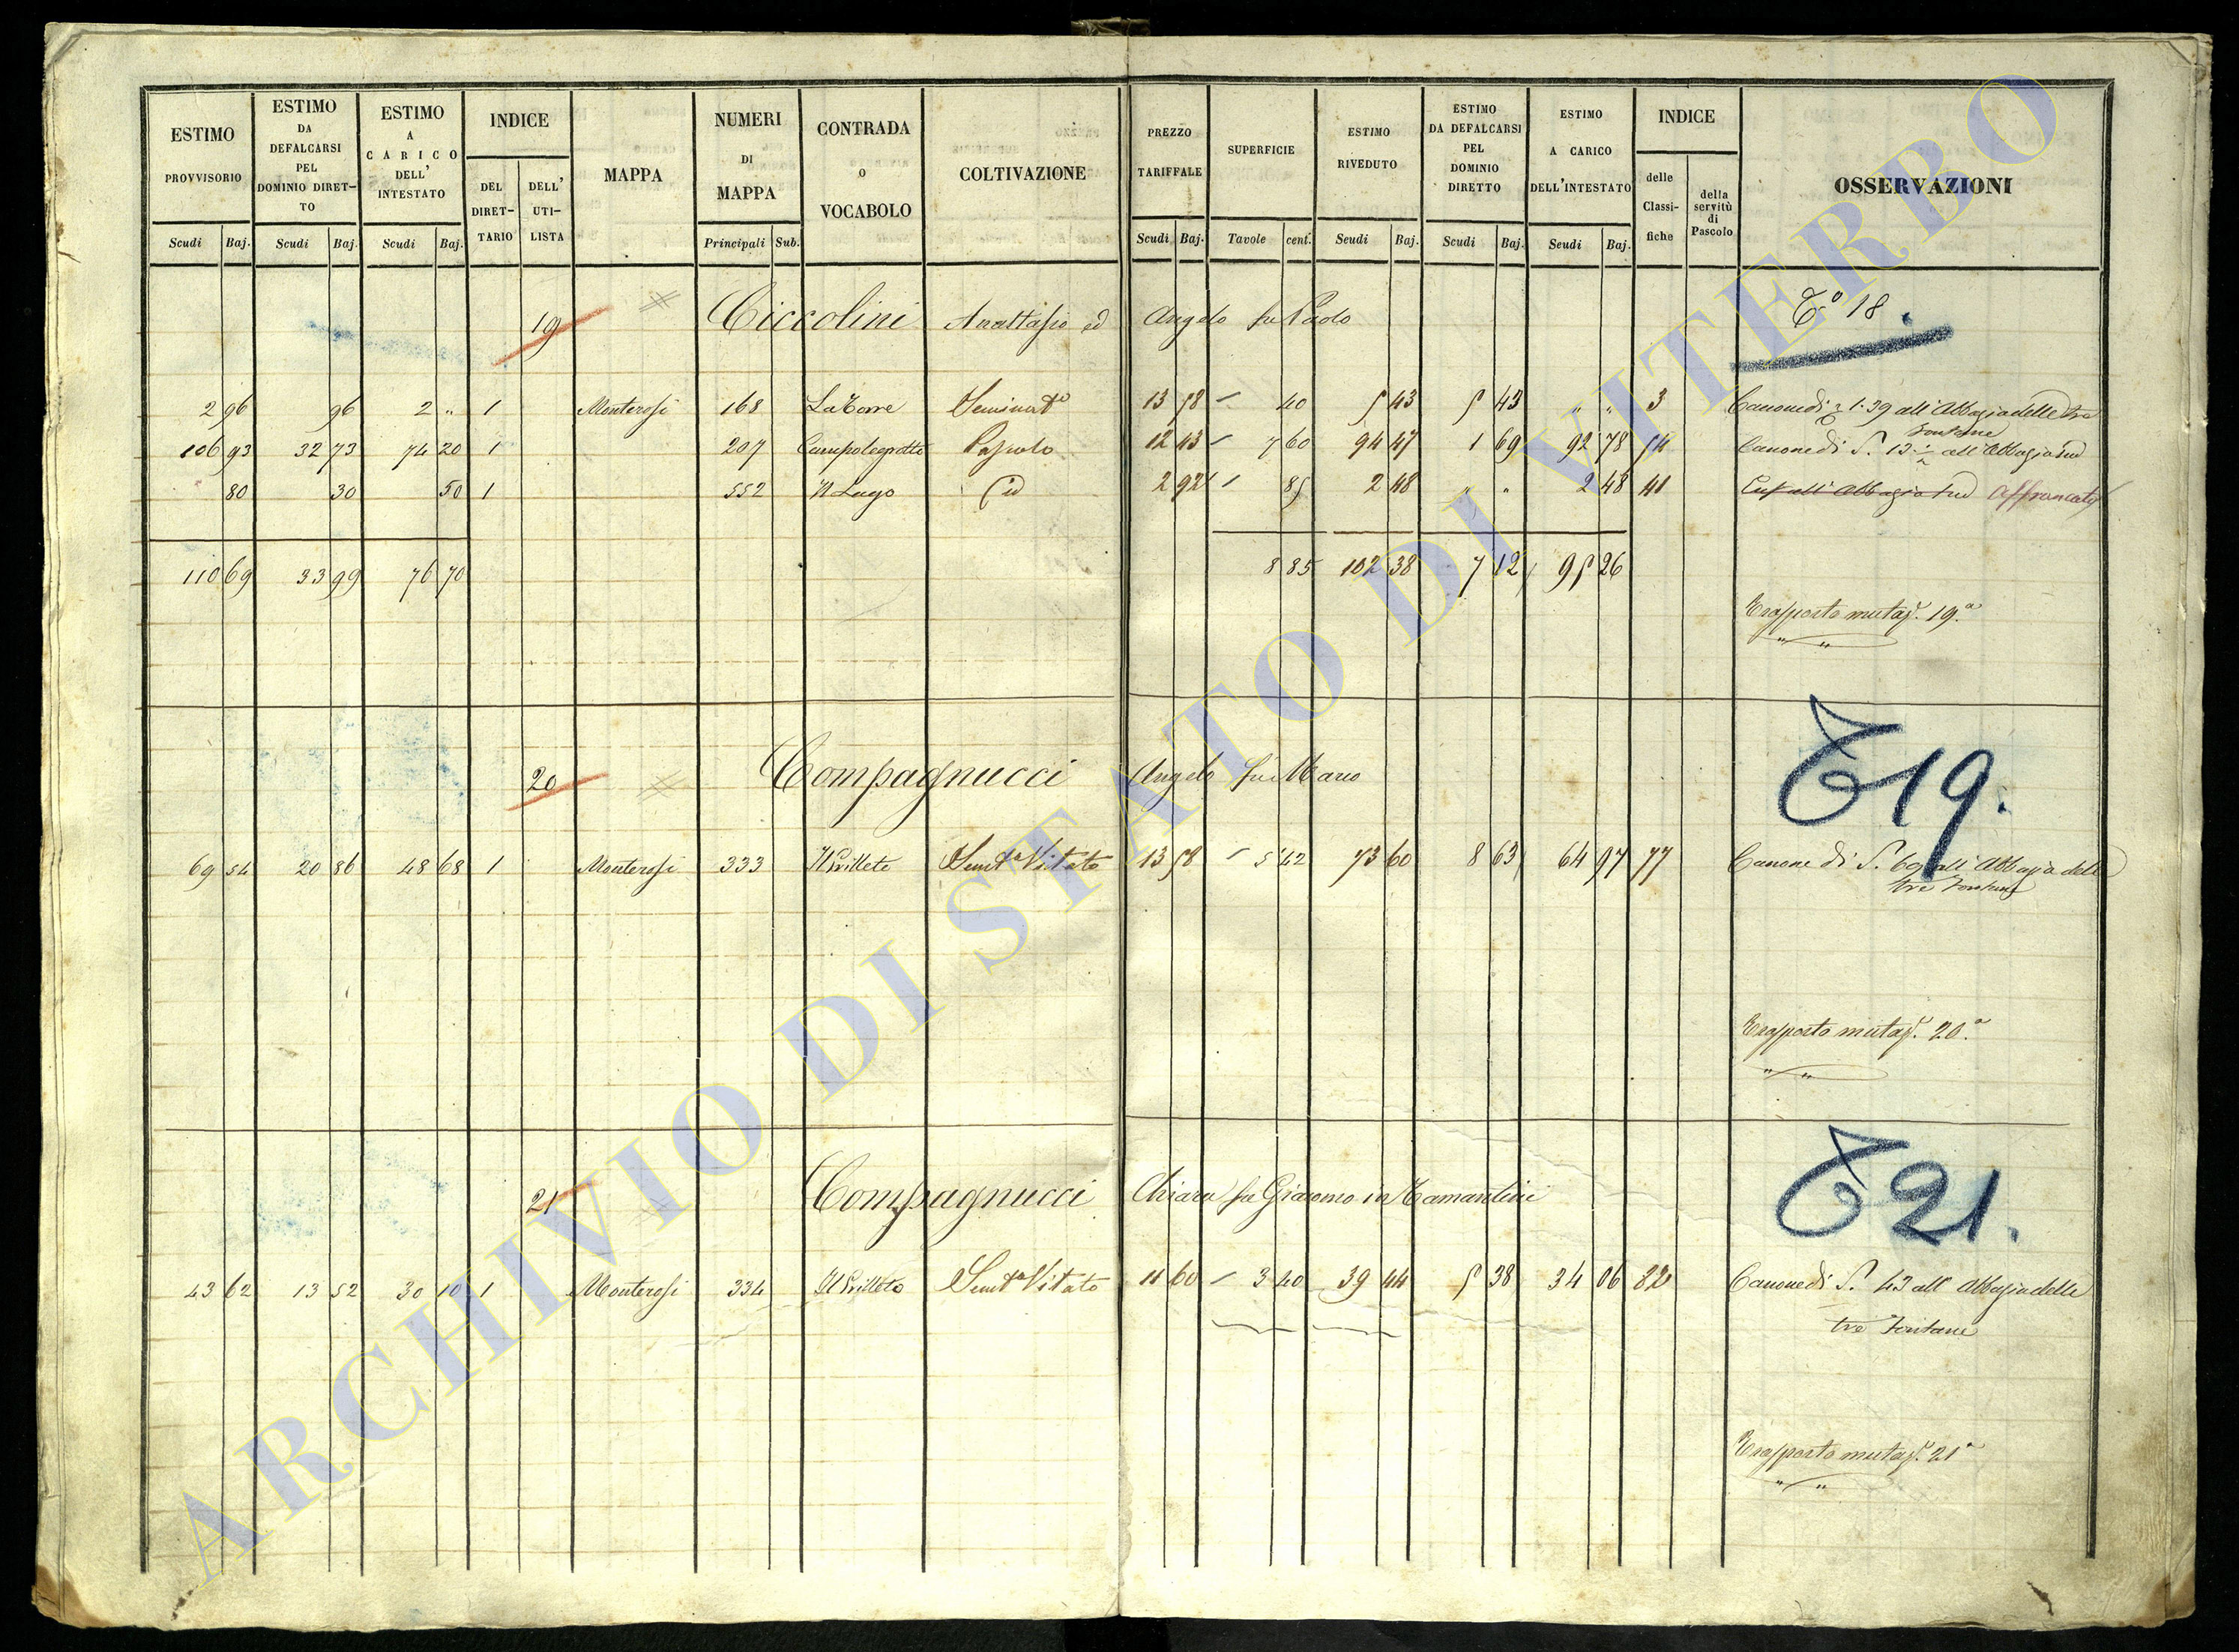 ESTIMO PROVVISORIO Scudi Baj.
ESTIMO DA DEFALCARSI PEL DOMINIO DIRETTO Scudi Baj.
ESTIMO A CARICO DELL' INTESTATO Scudi Baj.
INDICE DEL DIRETTARIO DELL' UTILISTA
MAPPA
NUMERI DI MAPPA Principali Sub.
CONTRADA O VOCABOLO
COLTIVAZIONE
PREZZO TARIFFALE Scudi Baj.
SUPERFICIE Tavole cent.
ESTIMO RIVEDUTO Scudi Baj.
ESTIMO DA DEFALCARSI PEL DOMINIO DIRETTO Scudi Baj.
ESTIMO A CARICO DELL'INTESTATO Scudi Baj.
INDICE delle Classifiche della servitù di Pascolo
OSSERVAZIONI
19 Ciccolini Anattasio ed Angelo fu Paolo T.º 18.
2 96 96 2 „ 1 Monterosi 168 La Torre Seminatº 13 58 – 40 5 43 5 43 „ „ 3 Canone di 1:39 all'Abbazia delle tre
Fontane
106 93 32 73 74 20 1 207 Campolegrotte Pascolo 12 43 – 7 60 94 47 1 69 92 78 14 Canone di S. 13 all'Abbazia sud
80 30 50 1 552 Il Lago Id 2 92 – 85 2 48 „ „ 2 48 41 all'Abbazia sud Affrancato
110 69 33 99 76 70 8 85 102 38 7 12 95 26
Trasporto mutaz. 19.ª
„ „
20 Compagnucci Angelo fu Marco T 19.
69 54 20 86 48 68 1 Monterosi 333 Semtº Vitato 13 58 – 5 42 73 60 8 63 64 97 77 Canone di S. 69 all'Abbazia delle
tre Fontane
Trasporto mutaz. 20.ª
„ „
21 Compagnucci Chiara fu Giacomo in Tamantini T 21.
43 62 13 52 30 10 1 Monterosi 334 Semtº Vitato 11 60 – 3 40 39 44 5 38 34 06 82 Canone di S. 43 all'Abbazia delle
tre Fontane
Trasporto mutaz. 21ª
„ „
ARCHIVIO DI STATO DI VITERBO